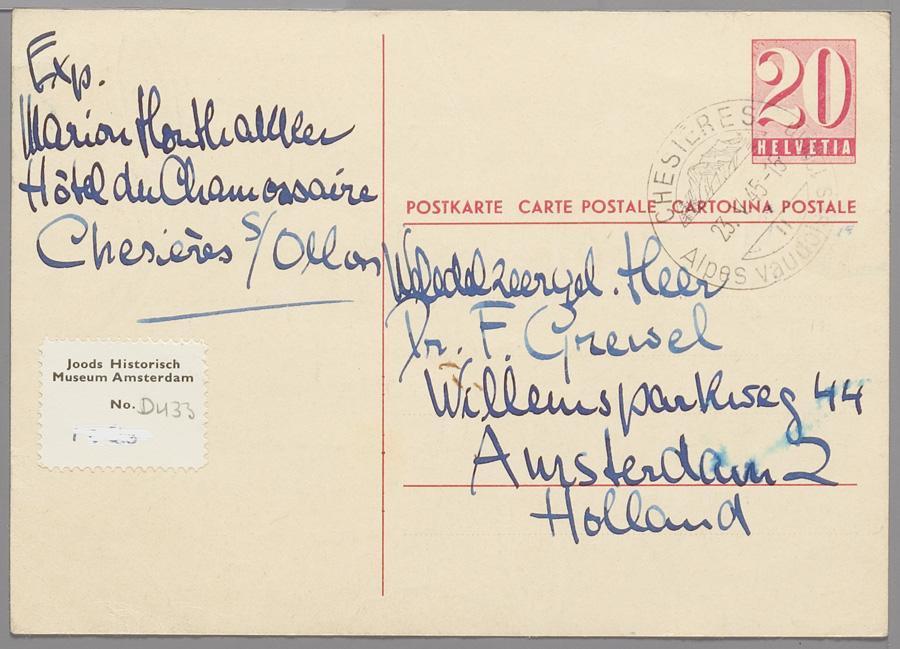 Exp.
Marion
Hôtel du Chamossaire
Chesières s/Ollon
Joods Historisch
Museum Amsterdam
No. D433
20
HELVETIA
CHESIÈRES
23. 45-15
Alpes vaudoises
POSTKARTE CARTE POSTALE CARTOLINA POSTALE
Weledelzeergel. Heer
Dr. F. Grewel
Willemsparkweg 44
Amsterdam 2
Holland